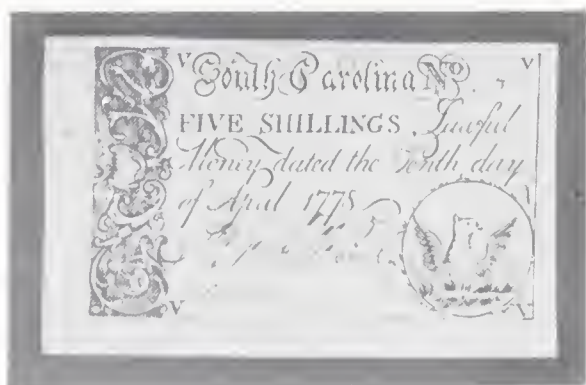 V South Carolina No V
FIVE SHILLINGS Lawful
Money dated the Tenth day
of April 1778
V V